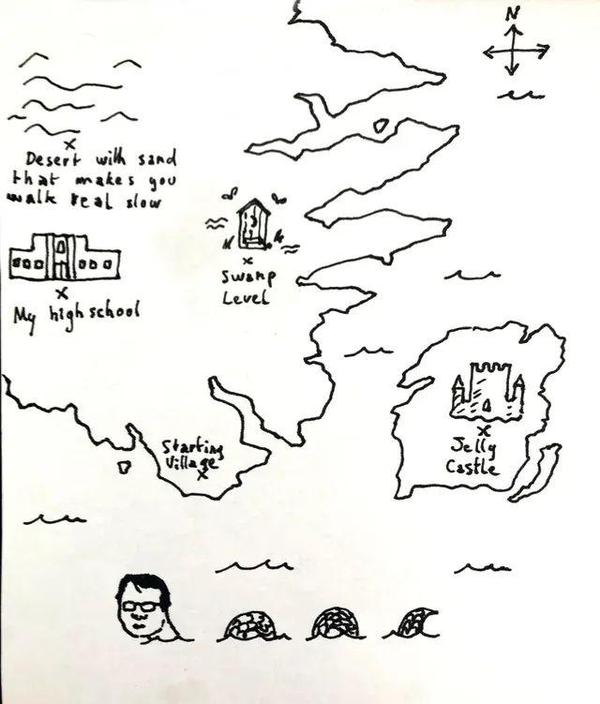 N
Desert with sand
that makes you
walk real slow
Swamp
Level
My high school
Starting
Village
Jelly
Castle